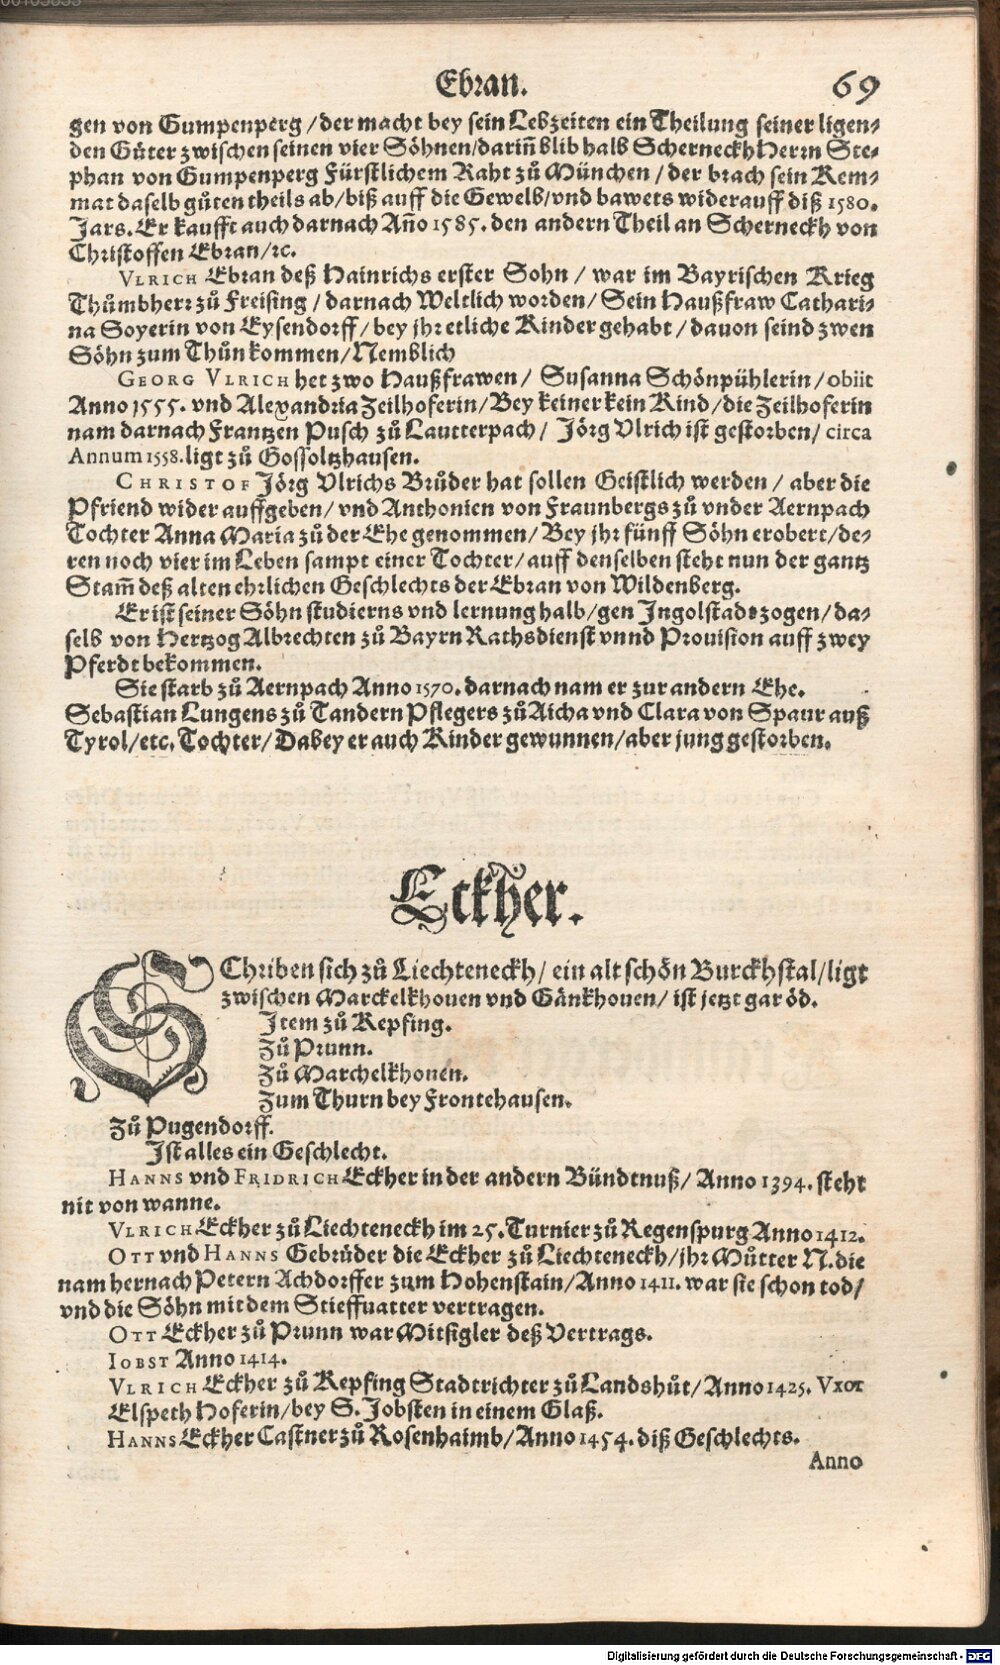 Ebran. 69
gen von Gumpenperg / der macht bey sein Lebzeiten ein Theilung seiner ligen⸗
den Gůter zwischen seinen vier Söhnen/darin̄ blib halb Scherneckh Herrn Ste⸗
phan von Gumpenperg Fürstlichem Raht zů München / der brach sein Kem⸗
mat daselb gůten theils ab/biß auff die Gewelb/vnd bawets widerauff diß 1580.
Jars. Er kaufft auch darnach An̄o 1585. den andern Theil an Scherneckh von
Christoffen Ebran/ꝛc.
VLRICH Ebran deß Hainrichs erster Sohn / war im Bayrischen Krieg
Thůmbherr zů Freising / darnach Weltlich worden/ Sein Haußfraw Cathari⸗
na Soyerin von Eysendorff/ bey jhr etliche Kinder gehabt / dauon seind zwen
Söhn zum Thůn kommen/Nemblich
GEORG VLRICH het zwo Haußfrawen/ Susanna Schönpühlerin/ obiit
Anno 1555. vnd Alexandria Zeilhoferin/Bey keiner kein Kind/die Zeilhoferin
nam darnach Frantzen Pusch zů Lautterpach/ Jörg Vlrich ist gestorben/ circa
Annum 1558. ligt zů Gossoltzhausen.
CHRISTOF Jörg Vlrichs Brůder hat sollen Geistlich werden / aber die
Pfriend wider auffgeben/ vnd Anthonien von Fraunbergs zů vnder Aernpach
Tochter Anna Maria zů der Ehe genommen/ Bey jhr fünff Söhn erobert/de⸗
ren noch vier im Leben sampt einer Tochter/ auff denselben steht nun der gantz
Stam̄ deß alten ehrlichen Geschlechts der Ebran von Wildenberg.
Er ist seiner Söhn studierns vnd lernung halb/gen Ingolstadt zogen/da⸗
selb von Hertzog Albrechten zů Bayrn Rathsdienst vnnd Prouision auff zwey
Pferdt bekommen.
Sie starb zů Aernpach Anno 1570. darnach nam er zur andern Ehe.
Sebastian Lungens zů Tandern Pflegers zů Aicha vnd Clara von Spaur auß
Tyrol/etc. Tochter/ Dabey er auch Kinder gewunnen/aber jung gestorben.
Eckher.
SChriben sich zů Liechteneckh/ ein alt schön Burckhstal/ligt
zwischen Marckelkhouen vnd Gänkhouen/ ist jetzt gar öd.
Item zů Repfing.
Zů Prunn.
Zů Marchelkhouen.
Zum Thurn bey Frontehausen.
Zů Pugendorff.
Ist alles ein Geschlecht.
HANNS vnd FRIDRICH Eckher in der andern Bündtnuß/ Anno 1394. steht
nit von wanne.
VLRICH Eckher zů Liechteneckh im 25. Turnier zů Regenspurg Anno 1412.
OTT vnd HANNS Gebrüder die Eckher zů Liechteneckh/jhr Můtter N. die
nam hernach Petern Achdorffer zum Hohenstain/Anno 1411. war sie schon tod/
vnd die Söhn mit dem Stieffuatter vertragen.
OTT Eckher zů Prunn war Mitsigler deß Vertrags.
IOBST Anno 1414.
VLRICH Eckher zů Repfing Stadtrichter zů Landshůt/Anno 1425. Vxor
Elspeth Hoferin/bey S. Jobsten in einem Glaß.
HANNS Eckher Castner zů Rosenhaimb/Anno 1454. diß Geschlechts.
Anno
Digitalisierung gefördert durch die Deutsche Forschungsgemeinschaft - DFG